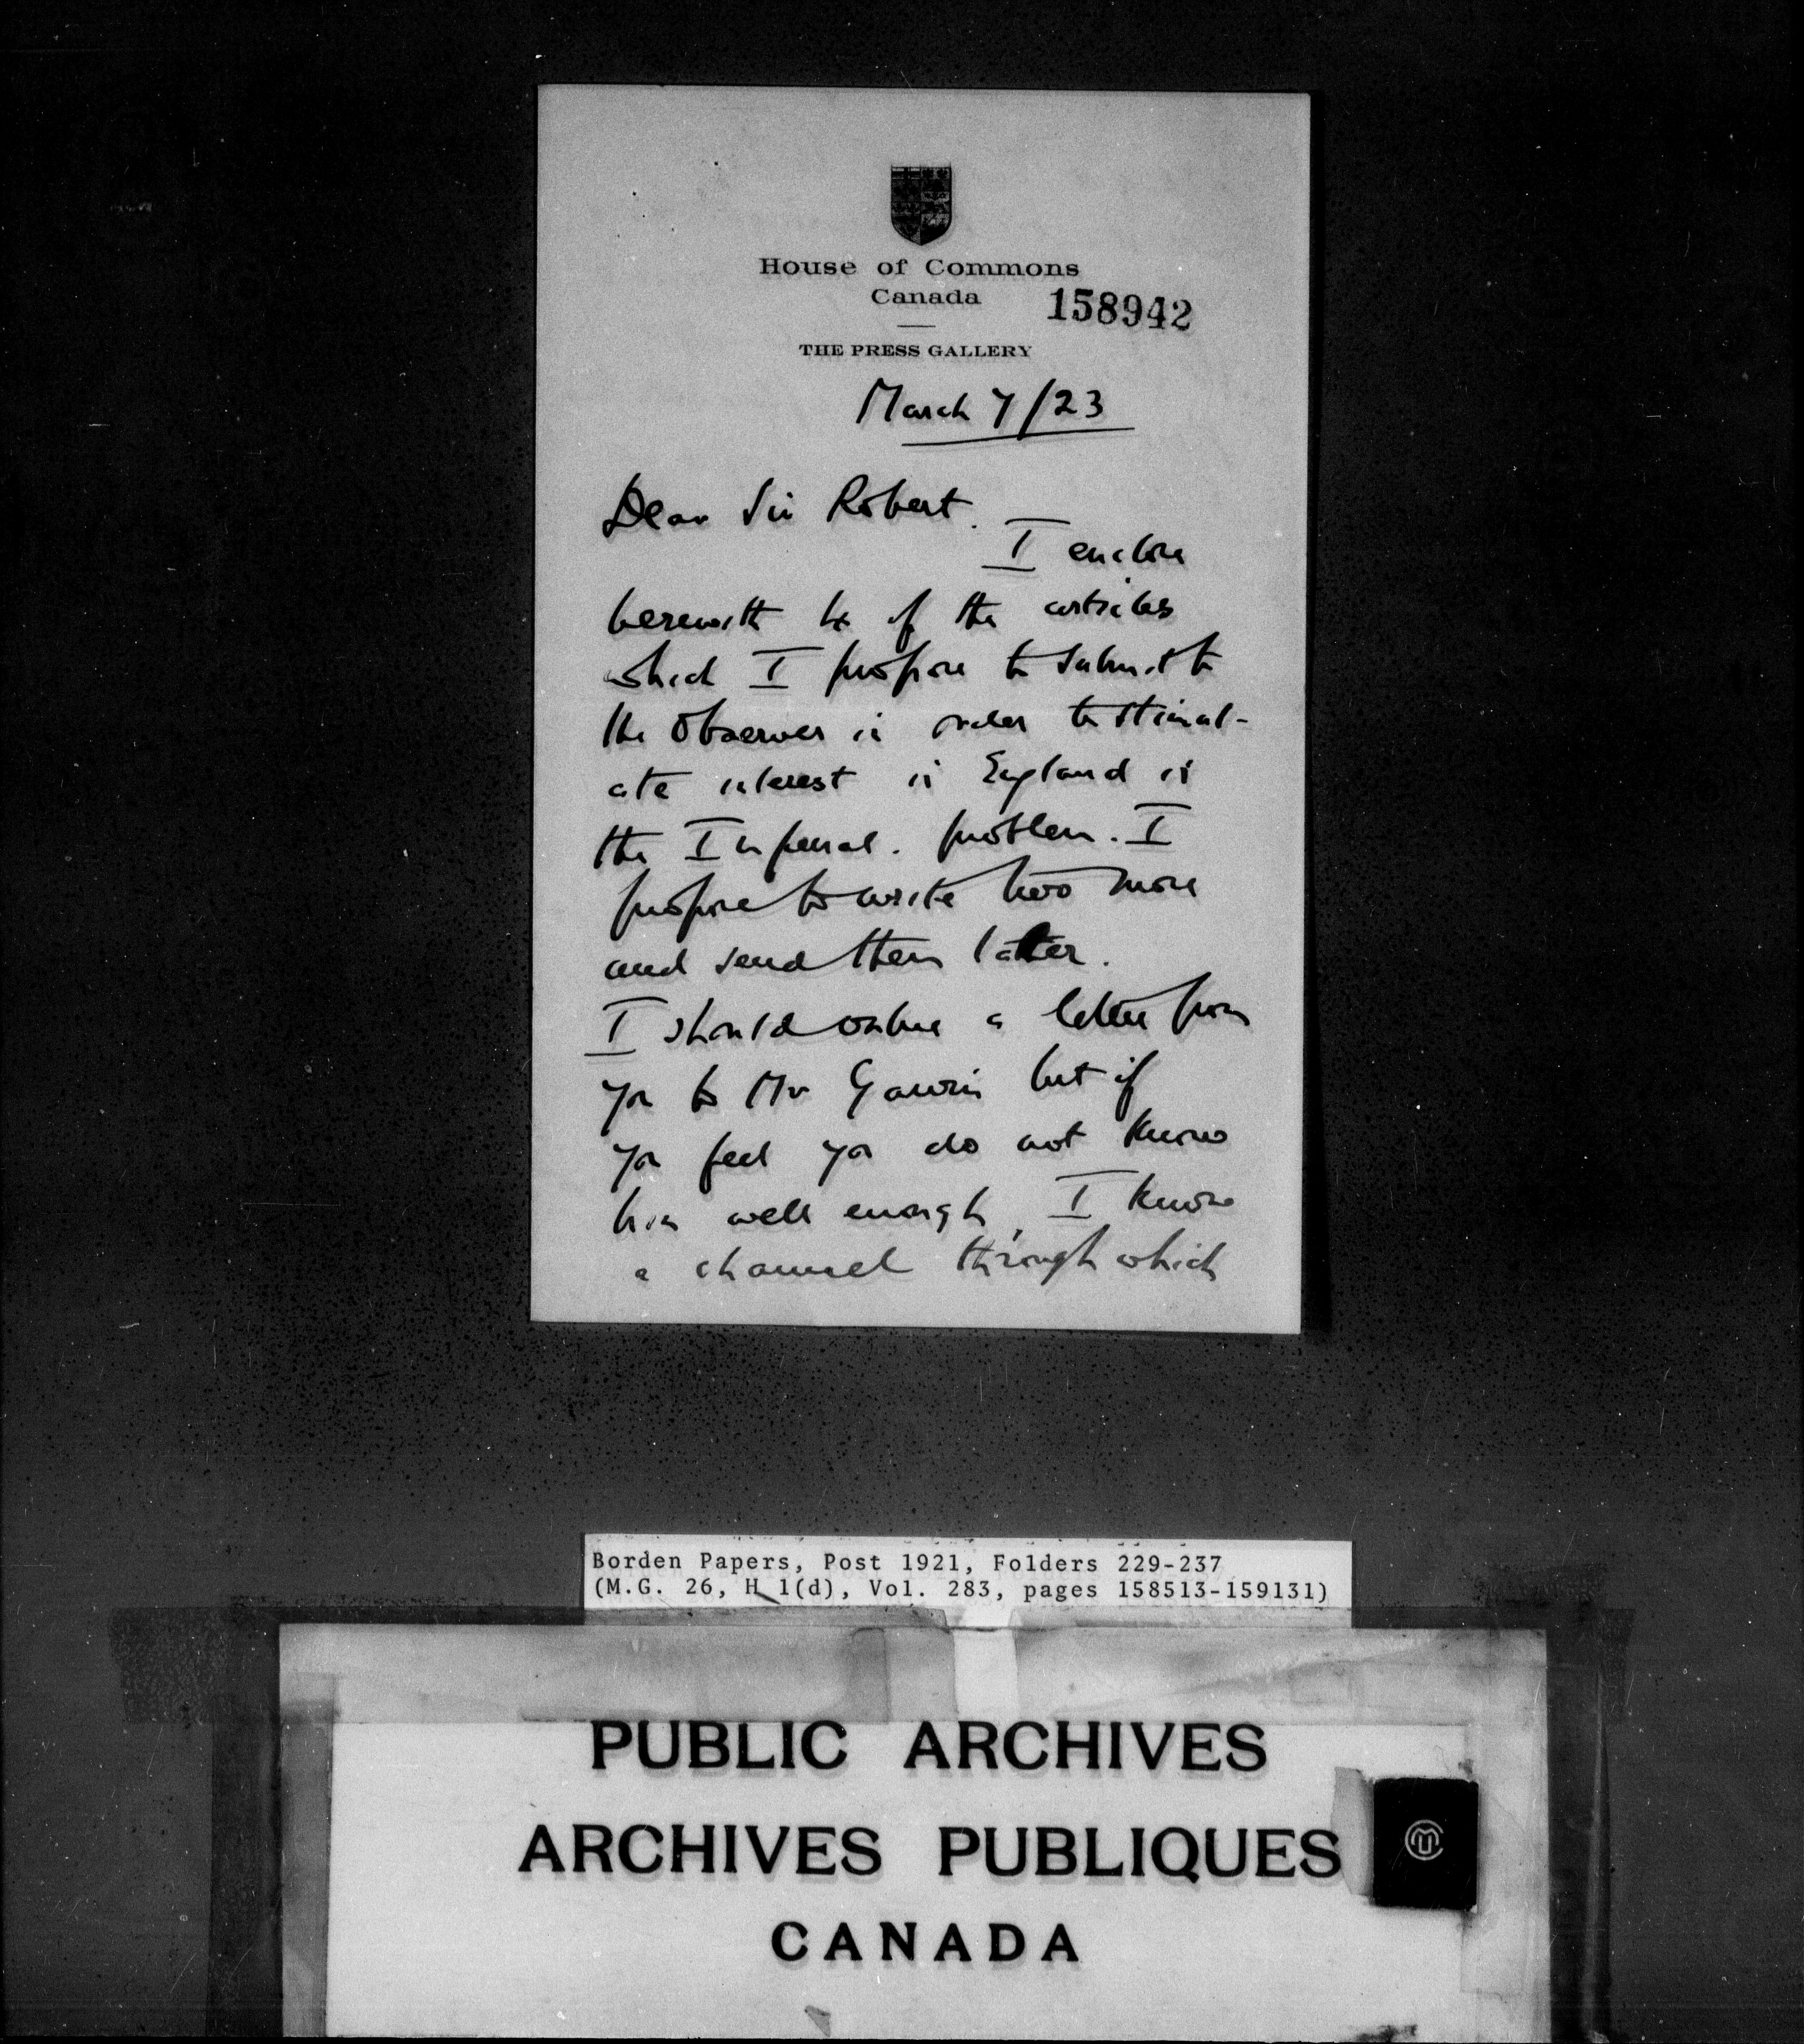 House of Commons
Canada
158942
THE PRESS GALLERY
March 7/23
Dear Sir Robert.
I enclose
herewith of the articles
which I propose to submit to
the Observer in order to stimul-
ate interest in England in
the Imperial. problem. I
propose to write two more
and send them later.
I should value a letter from
you to Mr Garvin but if
you feel you do not know
him well enough, I know
a channel through which
Borden Papers, Post 1921, Folders 229-237
(M.G. 26, H 1(d), Vol. 283, pages 158513-159131)
PUBLIC ARCHIVES
ARCHIVES PUBLIQUES
CANADA